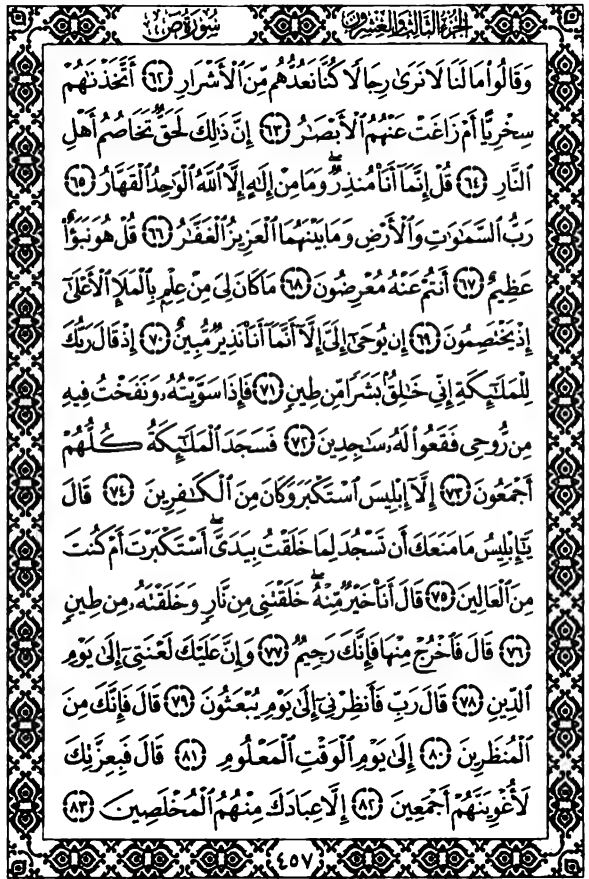 الجزء الثالث والعشرون سورة ص
وَقَالُوا۟ مَا لَنَا لَا نَرَىٰ رِجَالًا كُنَّا نَعُدُّهُم مِّنَ ٱلْأَشْرَارِ ٦٢ أَتَّخَذْنَٰهُمْ
سِخْرِيًّا أَمْ زَاغَتْ عَنْهُمُ ٱلْأَبْصَٰرُ ٦٣ إِنَّ ذَٰلِكَ لَحَقٌّ تَخَاصُمُ أَهْلِ
ٱلنَّارِ ٦٤ قُلْ إِنَّمَآ أَنَا۠ مُنذِرٌ ۖ وَمَا مِنْ إِلَٰهٍ إِلَّا ٱللَّهُ ٱلْوَٰحِدُ ٱلْقَهَّارُ ٦٥
رَبُّ ٱلسَّمَٰوَٰتِ وَٱلْأَرْضِ وَمَا بَيْنَهُمَا ٱلْعَزِيزُ ٱلْغَفَّٰرُ ٦٦ قُلْ هُوَ نَبَؤٌا۟
عَظِيمٌ ٦٧ أَنتُمْ عَنْهُ مُعْرِضُونَ ٦٨ مَا كَانَ لِىَ مِنْ عِلْمٍۭ بِٱلْمَلَإِ ٱلْأَعْلَىٰٓ
إِذْ يَخْتَصِمُونَ ٦٩ إِن يُوحَىٰٓ إِلَىَّ إِلَّآ أَنَّمَآ أَنَا۠ نَذِيرٌ مُّبِينٌ ٧٠ إِذْ قَالَ رَبُّكَ
لِلْمَلَٰٓئِكَةِ إِنِّى خَٰلِقٌۢ بَشَرًا مِّن طِينٍ ٧١ فَإِذَا سَوَّيْتُهُۥ وَنَفَخْتُ فِيهِ
مِن رُّوحِى فَقَعُوا۟ لَهُۥ سَٰجِدِينَ ٧٢ فَسَجَدَ ٱلْمَلَٰٓئِكَةُ كُلُّهُمْ
أَجْمَعُونَ ٧٣ إِلَّآ إِبْلِيسَ ٱسْتَكْبَرَ وَكَانَ مِنَ ٱلْكَٰفِرِينَ ٧٤ قَالَ
يَٰٓإِبْلِيسُ مَا مَنَعَكَ أَن تَسْجُدَ لِمَا خَلَقْتُ بِيَدَىَّ ۖ أَسْتَكْبَرْتَ أَمْ كُنتَ
مِنَ ٱلْعَالِينَ ٧٥ قَالَ أَنَا۠ خَيْرٌ مِّنْهُ ۖ خَلَقْتَنِى مِن نَّارٍ وَخَلَقْتَهُۥ مِن طِينٍ
٧٦ قَالَ فَٱخْرُجْ مِنْهَا فَإِنَّكَ رَجِيمٌ ٧٧ وَإِنَّ عَلَيْكَ لَعْنَتِىٓ إِلَىٰ يَوْمِ
ٱلدِّينِ ٧٨ قَالَ رَبِّ فَأَنظِرْنِىٓ إِلَىٰ يَوْمِ يُبْعَثُونَ ٧٩ قَالَ فَإِنَّكَ مِنَ
ٱلْمُنظَرِينَ ٨٠ إِلَىٰ يَوْمِ ٱلْوَقْتِ ٱلْمَعْلُومِ ٨١ قَالَ فَبِعِزَّتِكَ
لَأُغْوِيَنَّهُمْ أَجْمَعِينَ ٨٢ إِلَّا عِبَادَكَ مِنْهُمُ ٱلْمُخْلَصِينَ ٨٣
٤٥٧